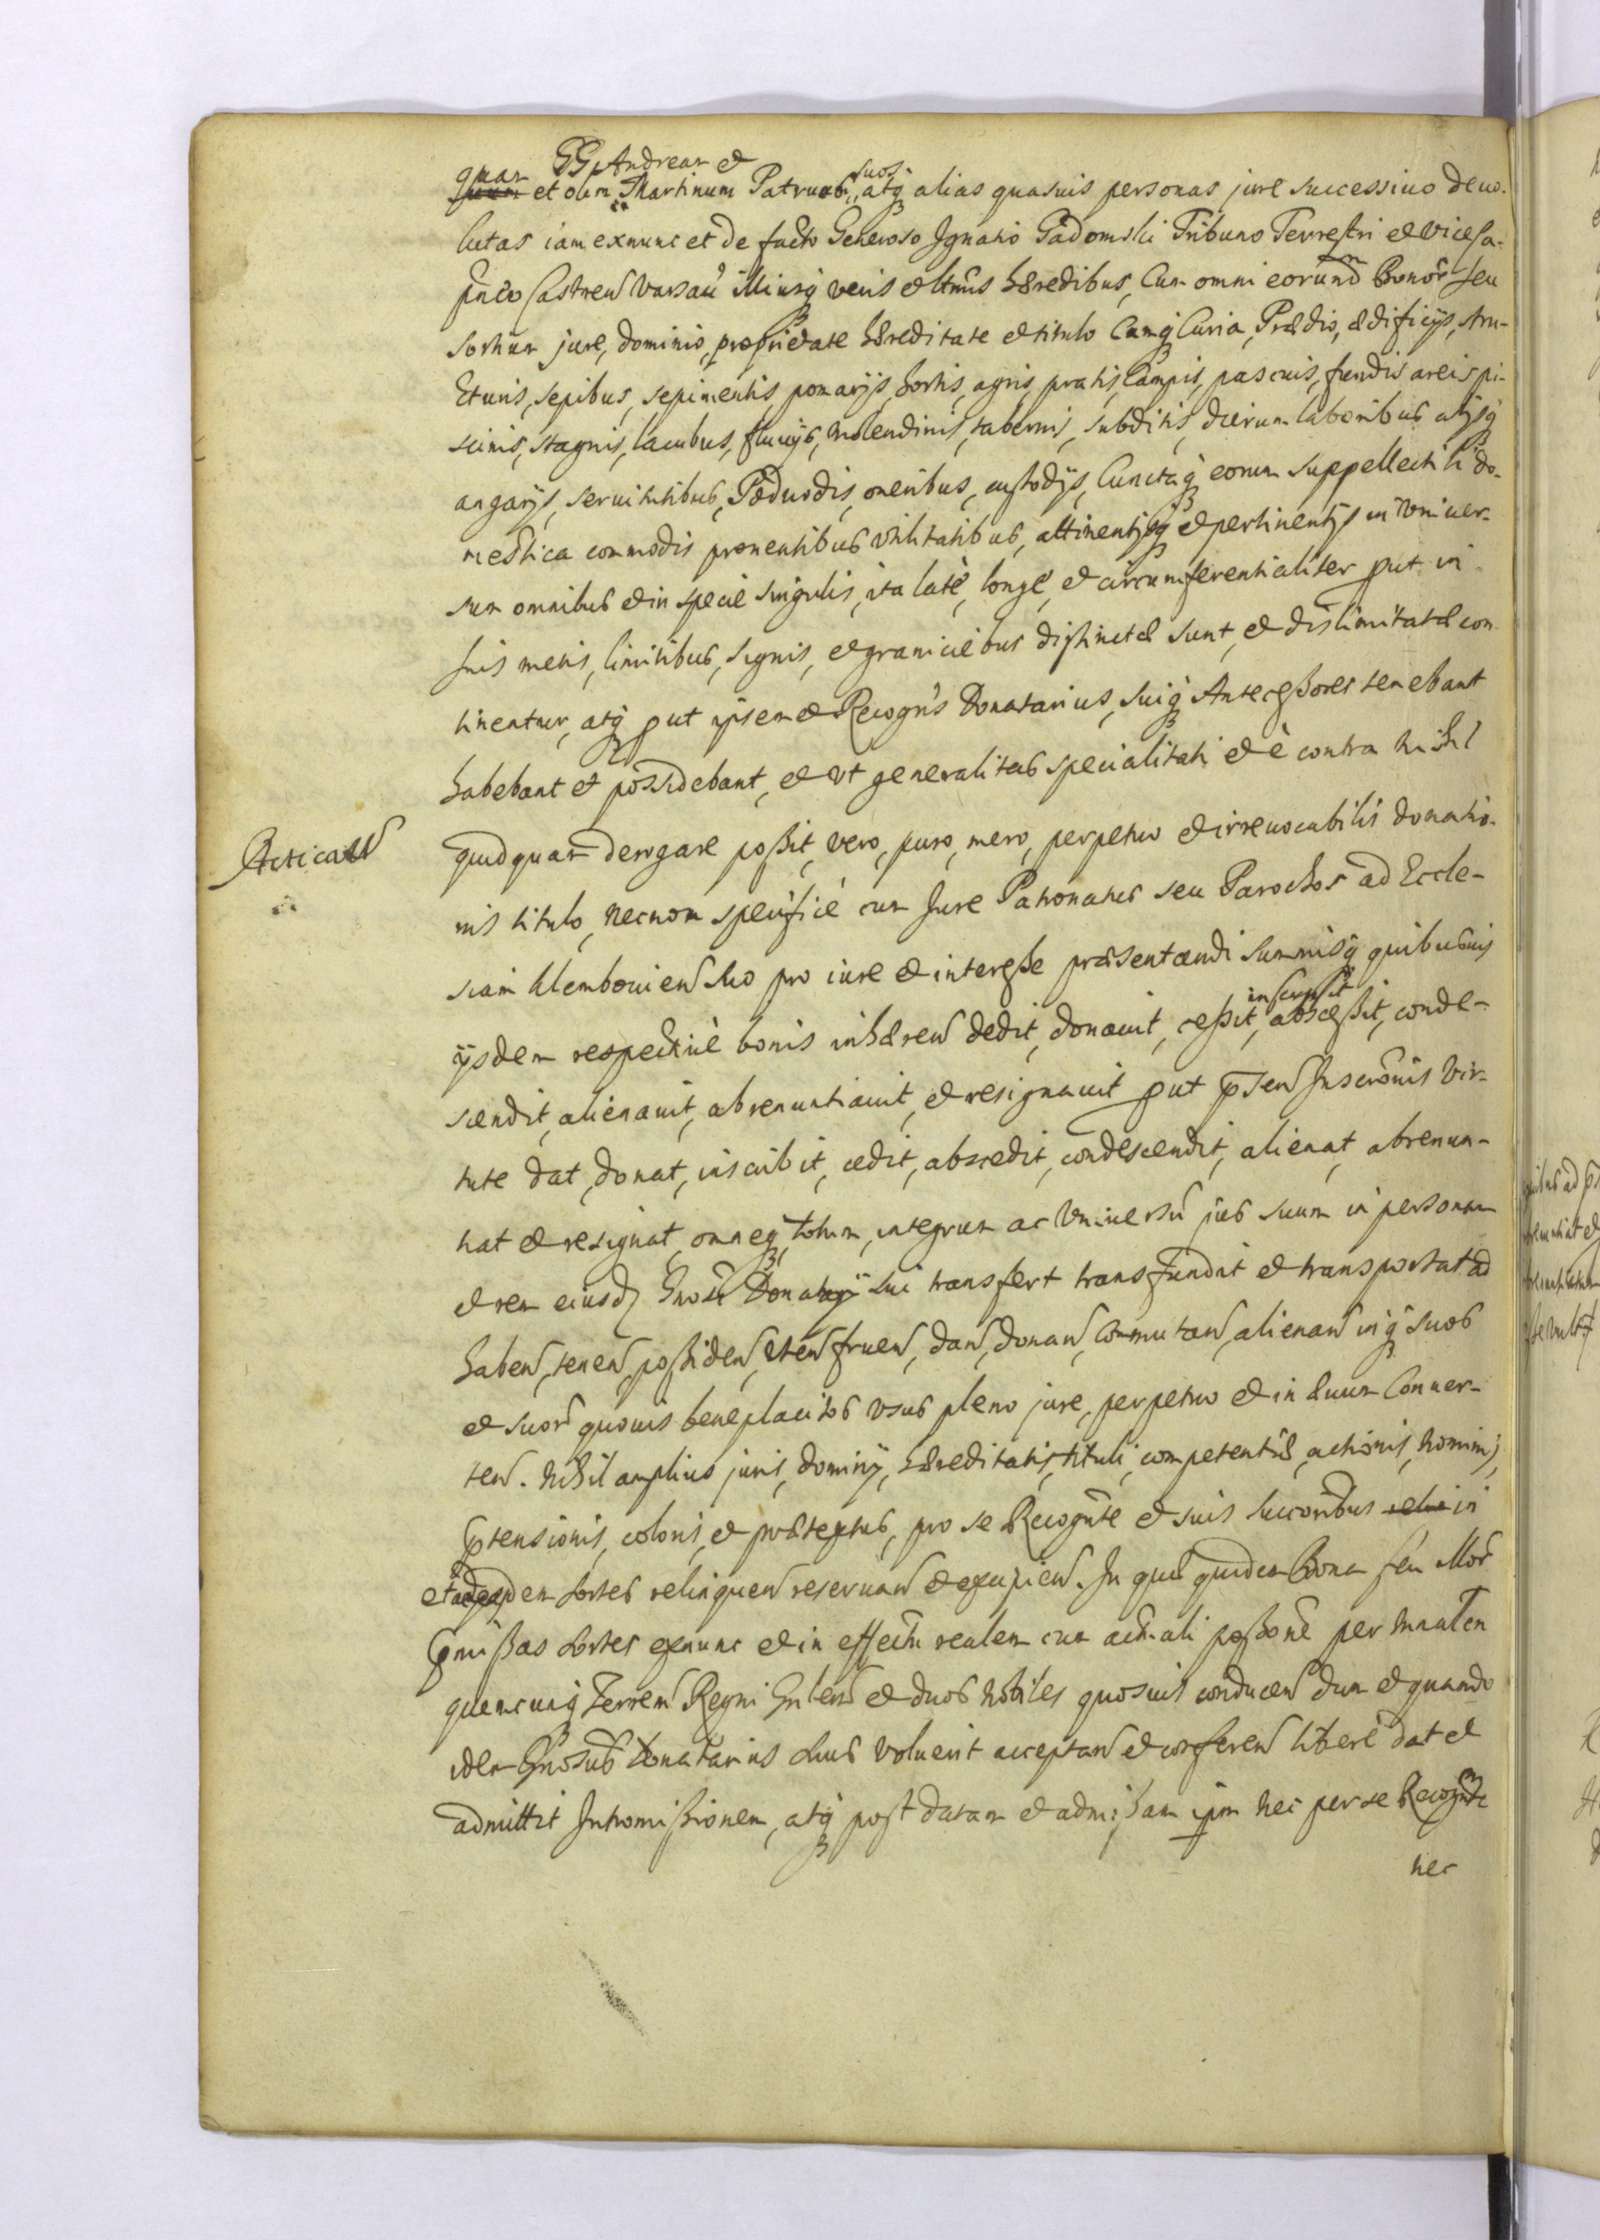 GG Andream et
quam et olim Martinum Patruos suos atq alias quasuis personas jure successiuo deuo-
lutas iam exnunc et de facto Generoso Ignatio Gadomski Tribuno Terrestri et Vicesa-
pñeo Castren Varsau illiusq veris et ltmis hæredibus, Cum omni eorund Bonor seu
Sortium jure, dominio, proprietate hæreditate et titulo Cumq Curia, Prædio, ædificijs, stru-
cturis, sepibus, sepimentis pomarijs, hortis, agris, pratis, Campis, pascuis, fundis areis pi-
scinis, stagnis, lacubus, fluuijs, molendinis, tabernis, subditis, dierum laboribus alijsq
angarijs, seruitutibus, Podwodis, oneribus, custodijs, Cunctaq eorum suppellectili do-
mestica commodis prouentibus vtilitatibus, attinentijsq et pertinentijs in vniuer-
sum omnibus et in specie singulis, ita latè, longè, et circumferentialiter put in
suis metis, limitibus, signis, et graniciebus distinctæ sunt, et dislimitatæ con-
tinentur, atq put ipsemet Recogns Donatarius, suiq Antecessores tenebant
habebant et possidebant, et vt generalitas specialitati et è contra nihil
Acticatn
quidquam derogare possit, vero, puro, mero, perpetuo et irreuocabilis donatio-
nis titulo, necnon specificè cum Jure Patronatus seu Parochos ad Eccle-
siam Klembouien suo pro iure et interesse præsentandi summisq quibusuis
ijsdem respectiuè bonis inhæren dedit, donauit, cessit, inscripsit abscessit, conde-
scendit, alienauit, abrenuntiauit, et resignauit put pñsen Inscrònis vir-
tute dat, donat, inscribit, cedit, abscedit, condescendit, alienat, abrenun-
tiat et resignat, omneq totum, integrum ac vniuersu jus suum in personam
et rem eiusd Gnosi Donatarij sui transfert transfundit et transportat ad
haben, tenen, possiden, vten fruen, dan, donan, commutan, alienan inq suos
et suor quouis beneplacitos vsus pleno jure, perpetuo et in æuum Conuer-
ten. Nihil amplius juris, dominij, hæreditatis, tituli, competentiæ, actionis, nominis,
ptensionis, coloris, et prætextus, pro se Recognte et suis succoribus relin in
et ad easdem sortes relinquen reseruan et excipien. In quæ quidem Bona seu illor
pmissas sortes exnunc et in effectu realem cum actuali possone per Mnalem
quemcunq Terren Regni Gnlem et duos Nobiles quosuis conducen dum et quando
idem Gnosus Donatarius suus voluerit acceptan et conferen liberè dat et
admittit Intromissionem, atq post datam et admissam ipm nec per se Recognte
nec